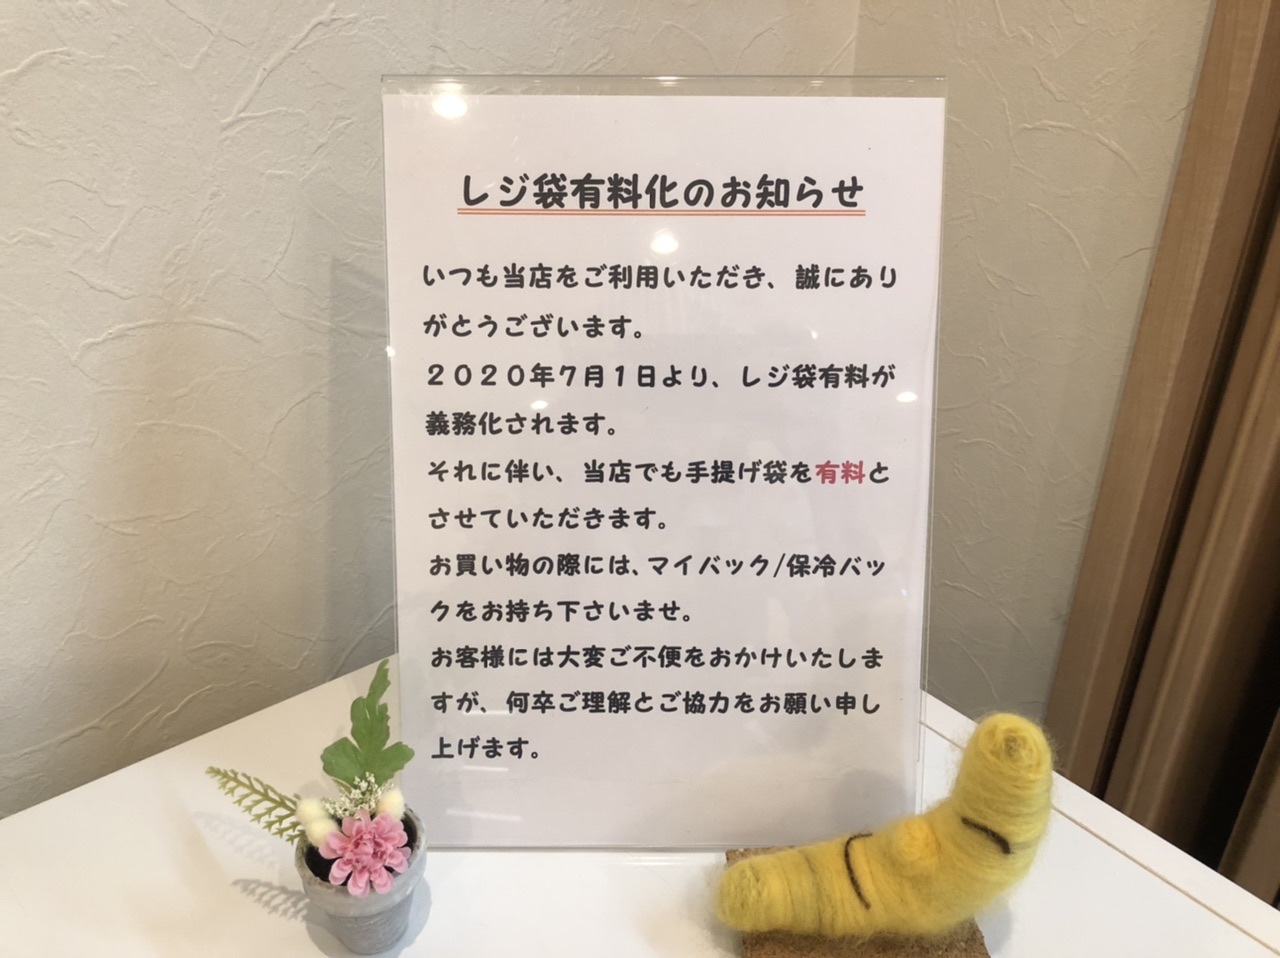 レジ袋有料化のお知らせ
いつも当店をご利用いただき、誠にあり
がとうございます。
２０２０年７月１日より、レジ袋有料が
義務化されます。
それに伴い、当店でも手提げ袋を有料と
させていただきます。
お買い物の際には、マイバック/保冷バッ
クをお持ち下さいませ。
お客様には大変ご不便をおかけいたしま
すが、何卒ご理解とご協力をお願い申し
上げます。